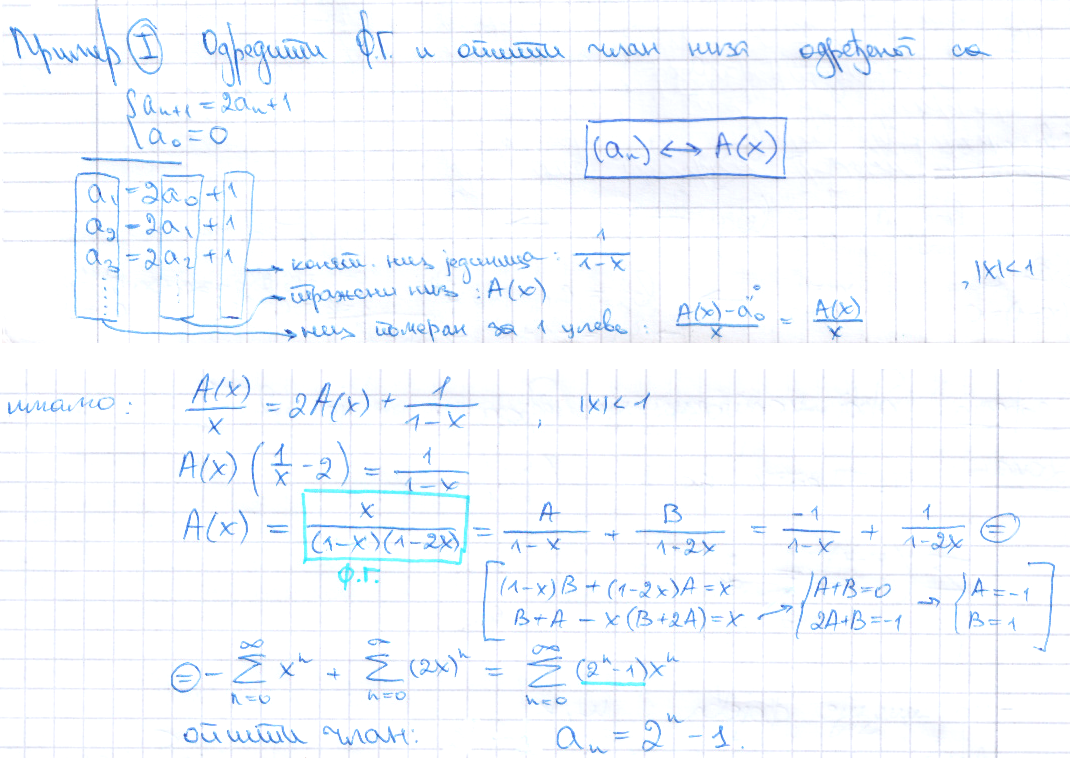 Пример I Одредити Ф.Г. и општи члан низа одређеног са
{ aₙ₊₁ = 2aₙ + 1
{ a₀ = 0
(aₙ) ↔ A(x)
a₁ = 2a₀ + 1
a₂ = 2a₁ + 1
a₃ = 2a₂ + 1 → конст. низ јединица : 1/(1-x)
→ тражени низ : A(x) , |x| < 1
→ низ померан за 1 улево : (A(x) - a₀)/x = A(x)/x
0
имамо: A(x)/x = 2A(x) + 1/(1-x) , |x| < 1
A(x) (1/x - 2) = 1/(1-x)
A(x) = x/((1-x)(1-2x)) = A/(1-x) + B/(1-2x) = -1/(1-x) + 1/(1-2x) =
Ф.Г.
[ (1-x)B + (1-2x)A = x { A+B=0 → { A=-1
B+A - x(B+2A) = x → { 2A+B=-1 { B=1 ]
= - ∑_{n=0}^{∞} xⁿ + ∑_{n=0}^{∞} (2x)ⁿ = ∑_{n=0}^{∞} (2ⁿ-1)xⁿ
општи члан: aₙ = 2ⁿ - 1.